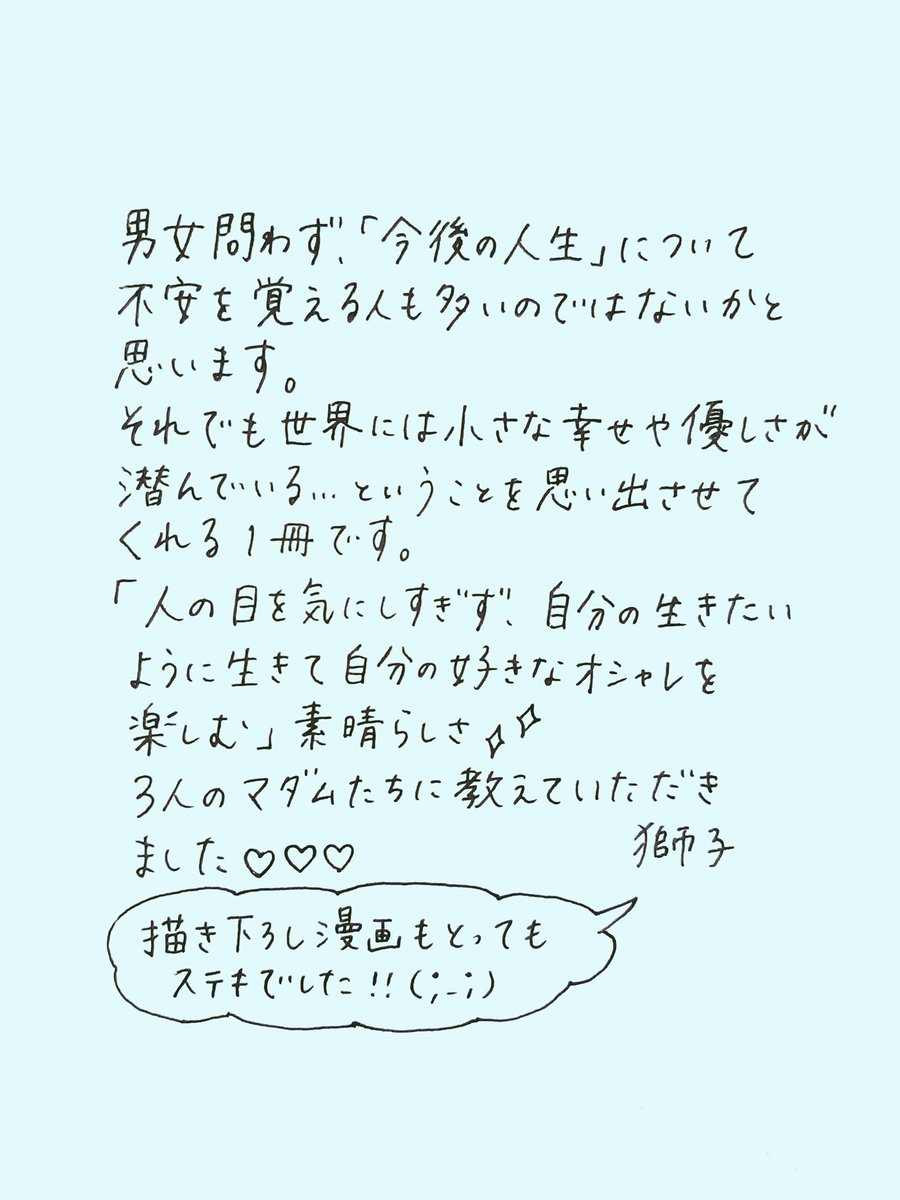 男女問わず、「今後の人生」について
不安を覚える人も多いのではないかと
思います。
それでも世界には小さな幸せや優しさが
潜んでいる…ということを思い出させて
くれる1冊です。
「人の目を気にしすぎず、自分の生きたい
ように生きて自分の好きなオシャレを
楽しむ」素晴らしさ✧✧
3人のマダムたちに教えていただき
ました♡♡♡
獅子
描き下ろし漫画もとっても
ステキでした!!(;_;)